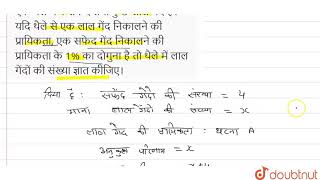 यदि थैले से एक लाल गेंद निकालने की
प्रायिकता, एक सफेद गेंद निकालने की
प्रायिकता के 1% का दोगुना है तो थैले में लाल
गेंदों की संख्या ज्ञात कीजिए।
दिया है : सफेद गेंदों की संख्या = 4
माना लाल गेंदों की संख्या = x
लाल गेंद की प्रायिकता : घटना A
अनुकूल परिणाम = x
doubtnut